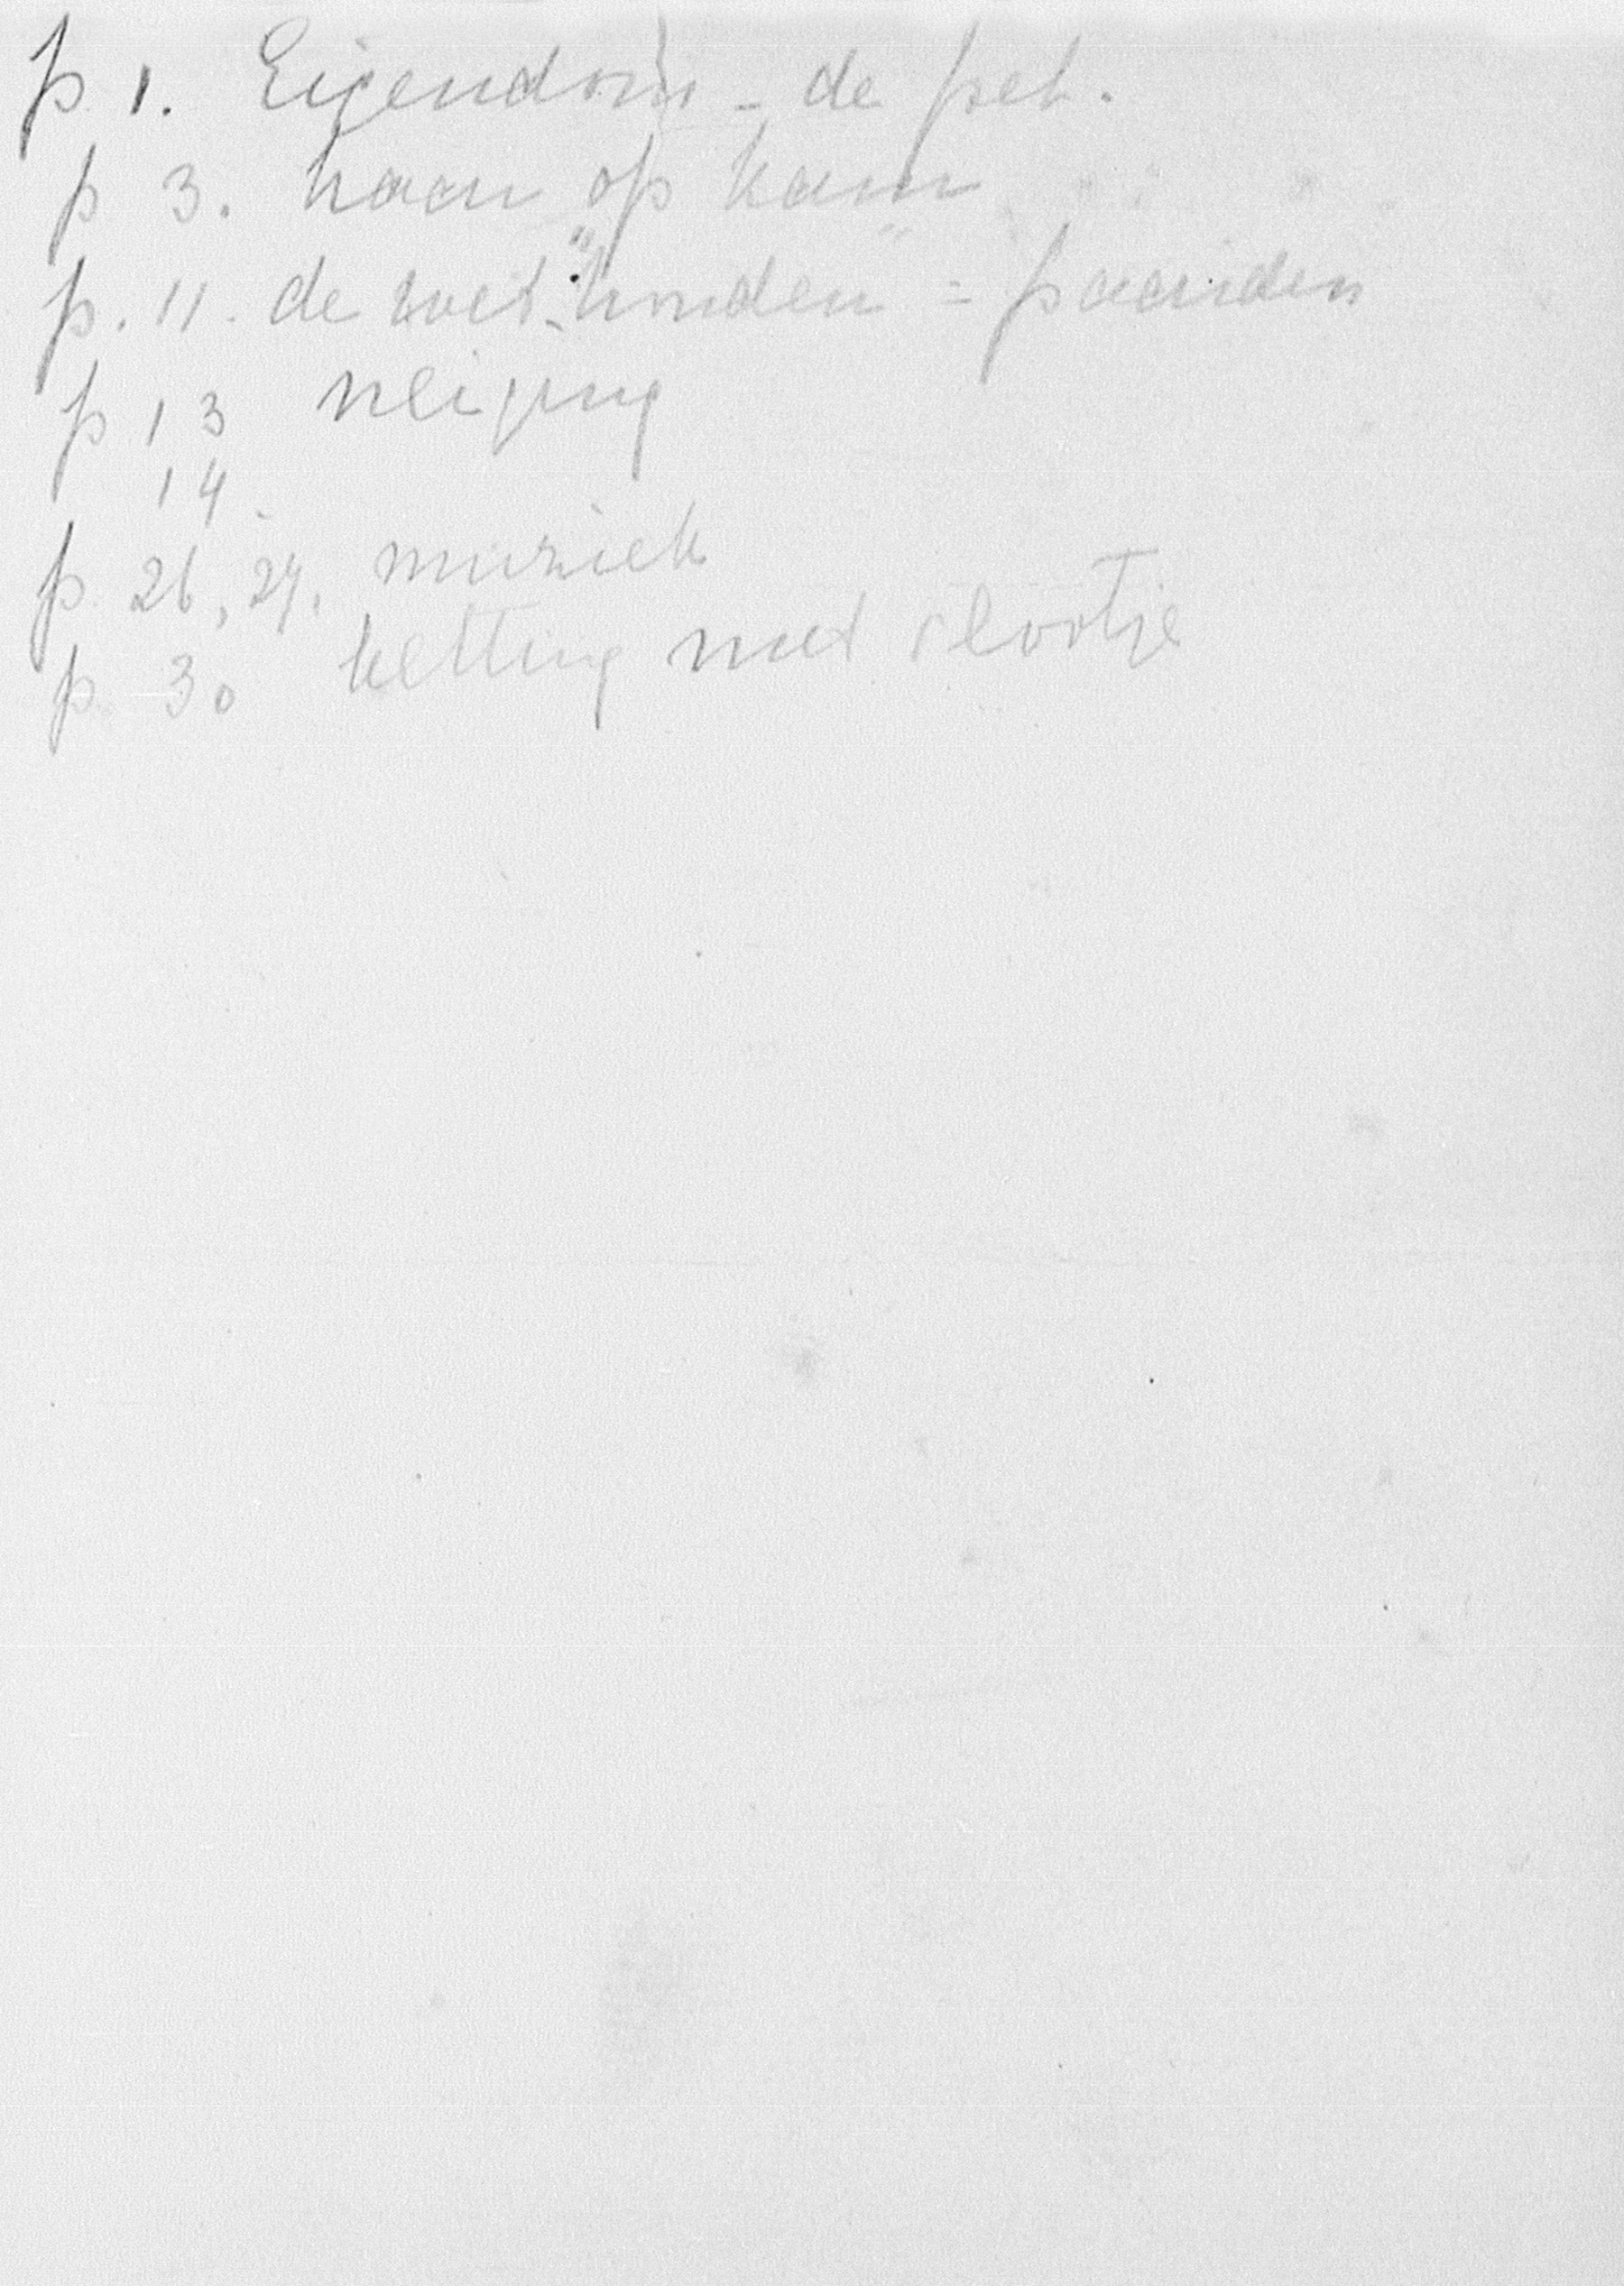 p 1. Eigendom - de pet.
p 3. haan op kam
p. 11. de wet. "honden" = paarden
p 13 neiging
14.
p 26, 27. muziek
p. 30 ketting met slootje